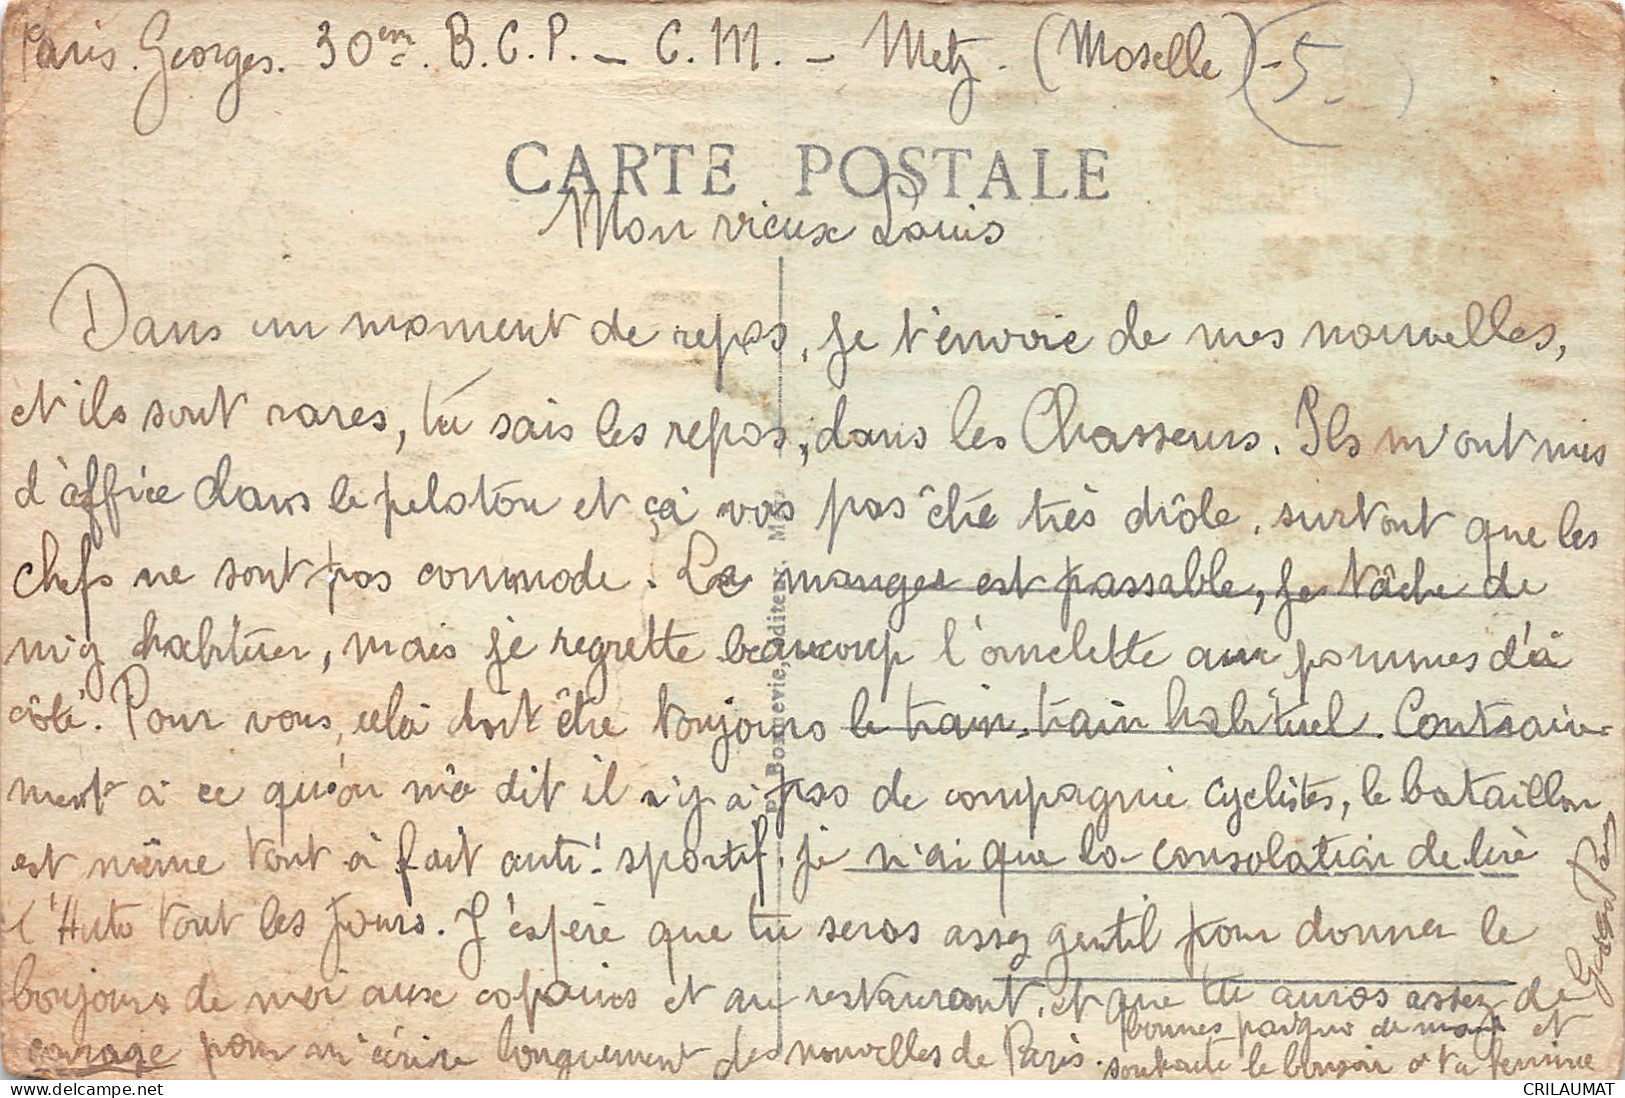 Paris. Georges. 30eme. B.C.P. - C.M. - Metz. (Moselle) - 5 -
CARTE POSTALE
Mon vieux Louis
Dans un moment de repos, je t'envoie de mes nouvelles,
et ils sont rares, tu sais les repos, dans les Chasseurs. Ils m'ont mis
d'affiée dans le peloton et çà vas pas êtré très drôle, surtout que les
chefs ne sont pas commode. Le manger est passable, je tâche de
m'y habituer, mais je regrette beaucoup l'omelette aux pommes d'à
côté. Pour vous, celà doit être toujours le train-train habituel. Contraire-
ment à ce qu'on m'a dit il n'y a pas de compagnie cyclistes, le bataillon
est même tout à fait anti-sportif. je n'ai que la consolation de lire
l'Auto tout les jours. J'espère que tu seras assez gentil pour donner le
bonjours de moi aux copains et au restaurant, et que tu auras assez de
courage pour m'écrire longuement des nouvelles de Paris.
bonnes poigne de main et
souhaite le bonjour à ta femme
Georges Paris
Bonnevie, éditeur, M
CRILAUMAT